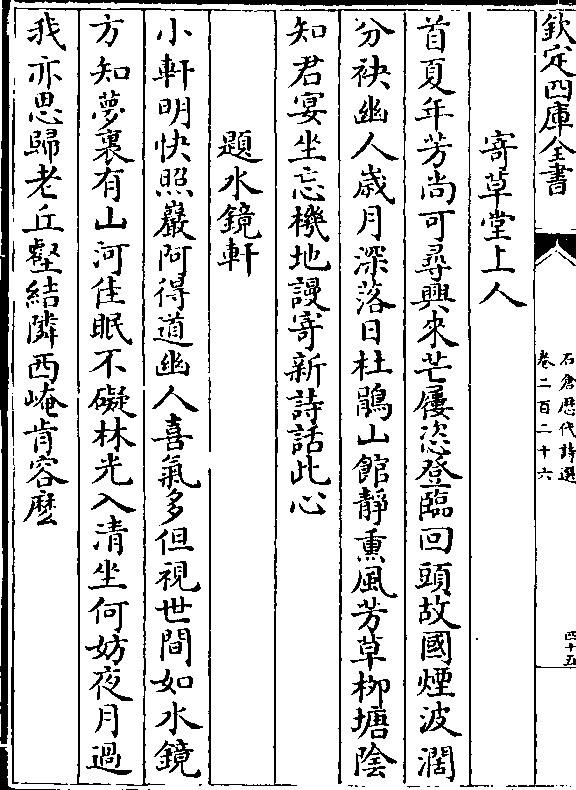 欽定四庫全書
石倉歷代詩選
卷二百二十六
四十五
寄草堂上人
首夏年芳尚可尋興來芒屨恣登臨回頭故國煙波濶
分袂幽人歲月深落日杜鵑山館靜熏風芳草栁塘陰
知君宴坐忘機地謾寄新詩話此心
題水鏡軒
小軒明快照巖阿得道幽人喜氣多但視世間如水鏡
方知夢裏有山河佳眠不礙林光入清坐何妨夜月過
我亦思歸老丘壑結隣西崦肯容麽